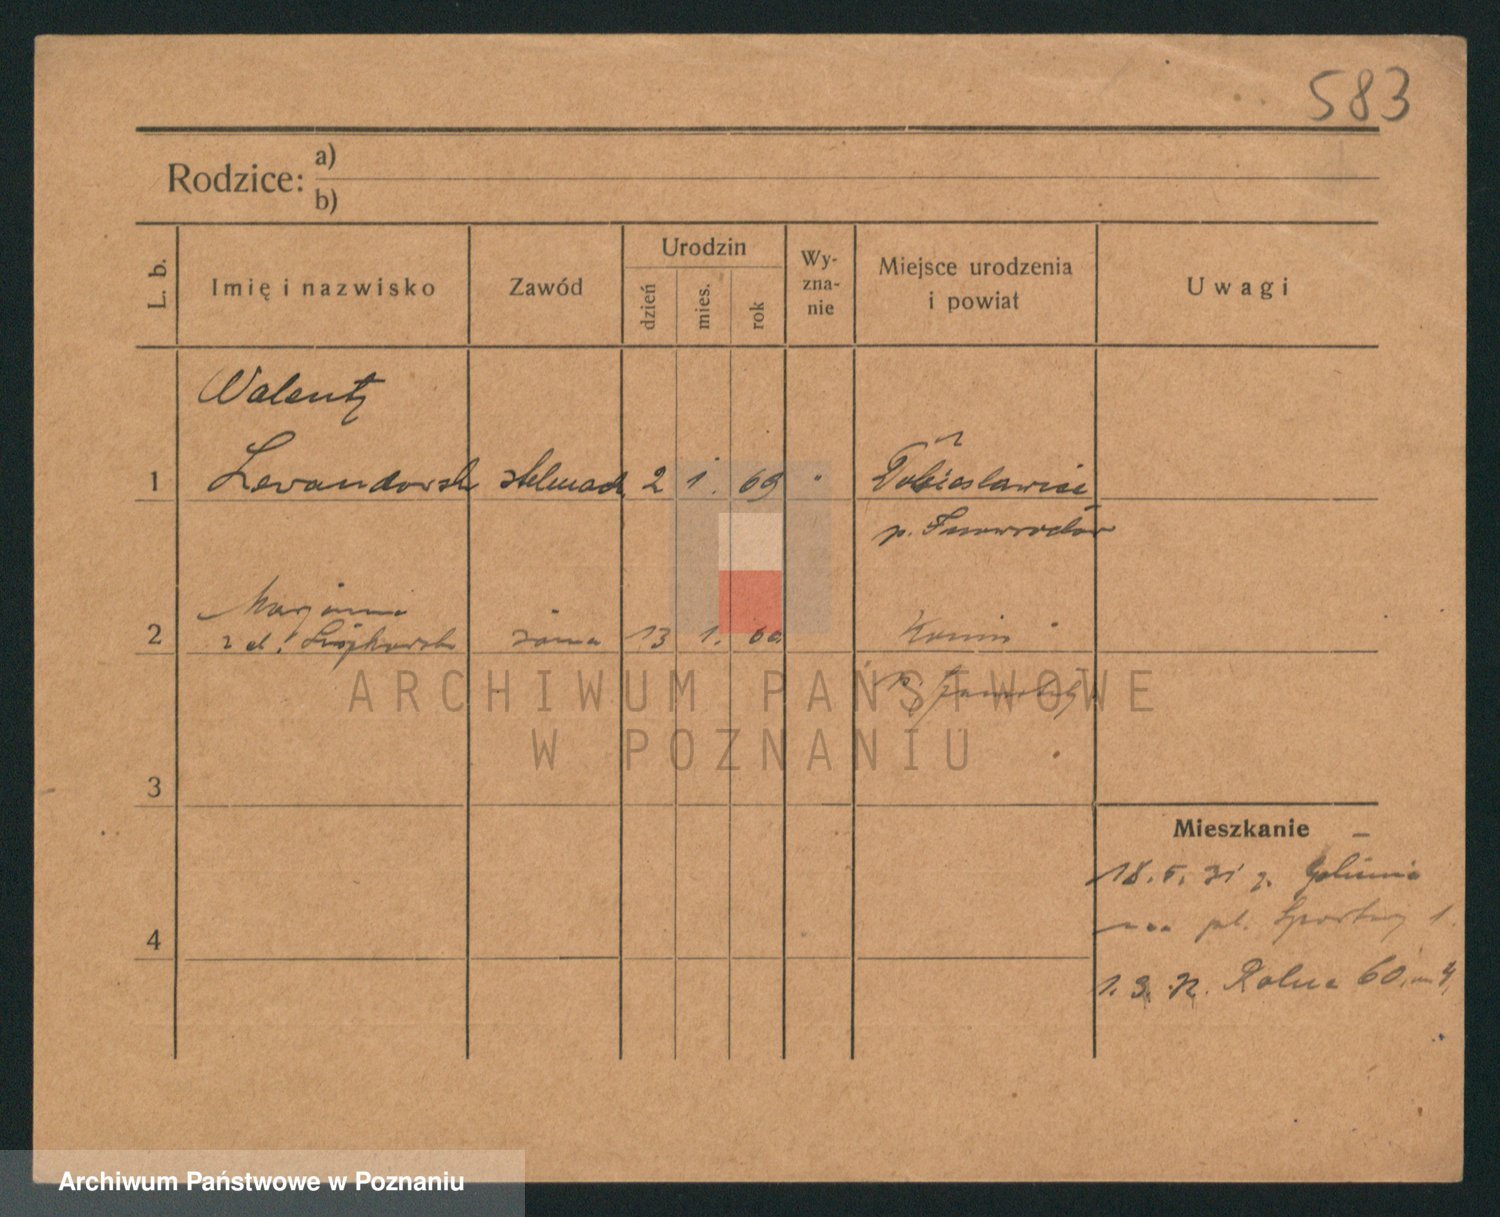 583
Rodzice: a)
b)
L. b.
Imię i nazwisko
Zawód
Urodzin
dzień
mies.
rok
Wy-
zna-
nie
Miejsce urodzenia
i powiat
Uwagi
Walenty
1 Lewandowski stelmach 2 1. 69 " Tobiesławice
p. Inowrocław
Marjanna
2 z d. żona 13 1. Konin
p.
3
4
Mieszkanie
18. 5. 31 z
na pl. Sportowy 1.
1. 9. 32. Rolna 60, m 4,
ARCHIWUM PAŃSTWOWE
W POZNANIU
Archiwum Państwowe w Poznaniu